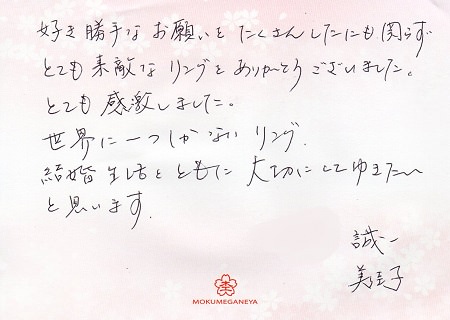 好き勝手なお願いをたくさんしたにも関らず
とても素敵なリングをありがとうございました。
とても感激しました。
世界に一つしかないリング、
結婚生活とともに大切にしてゆきたい
と思います。
誠一
美佳子
MOKUMEGANEYA